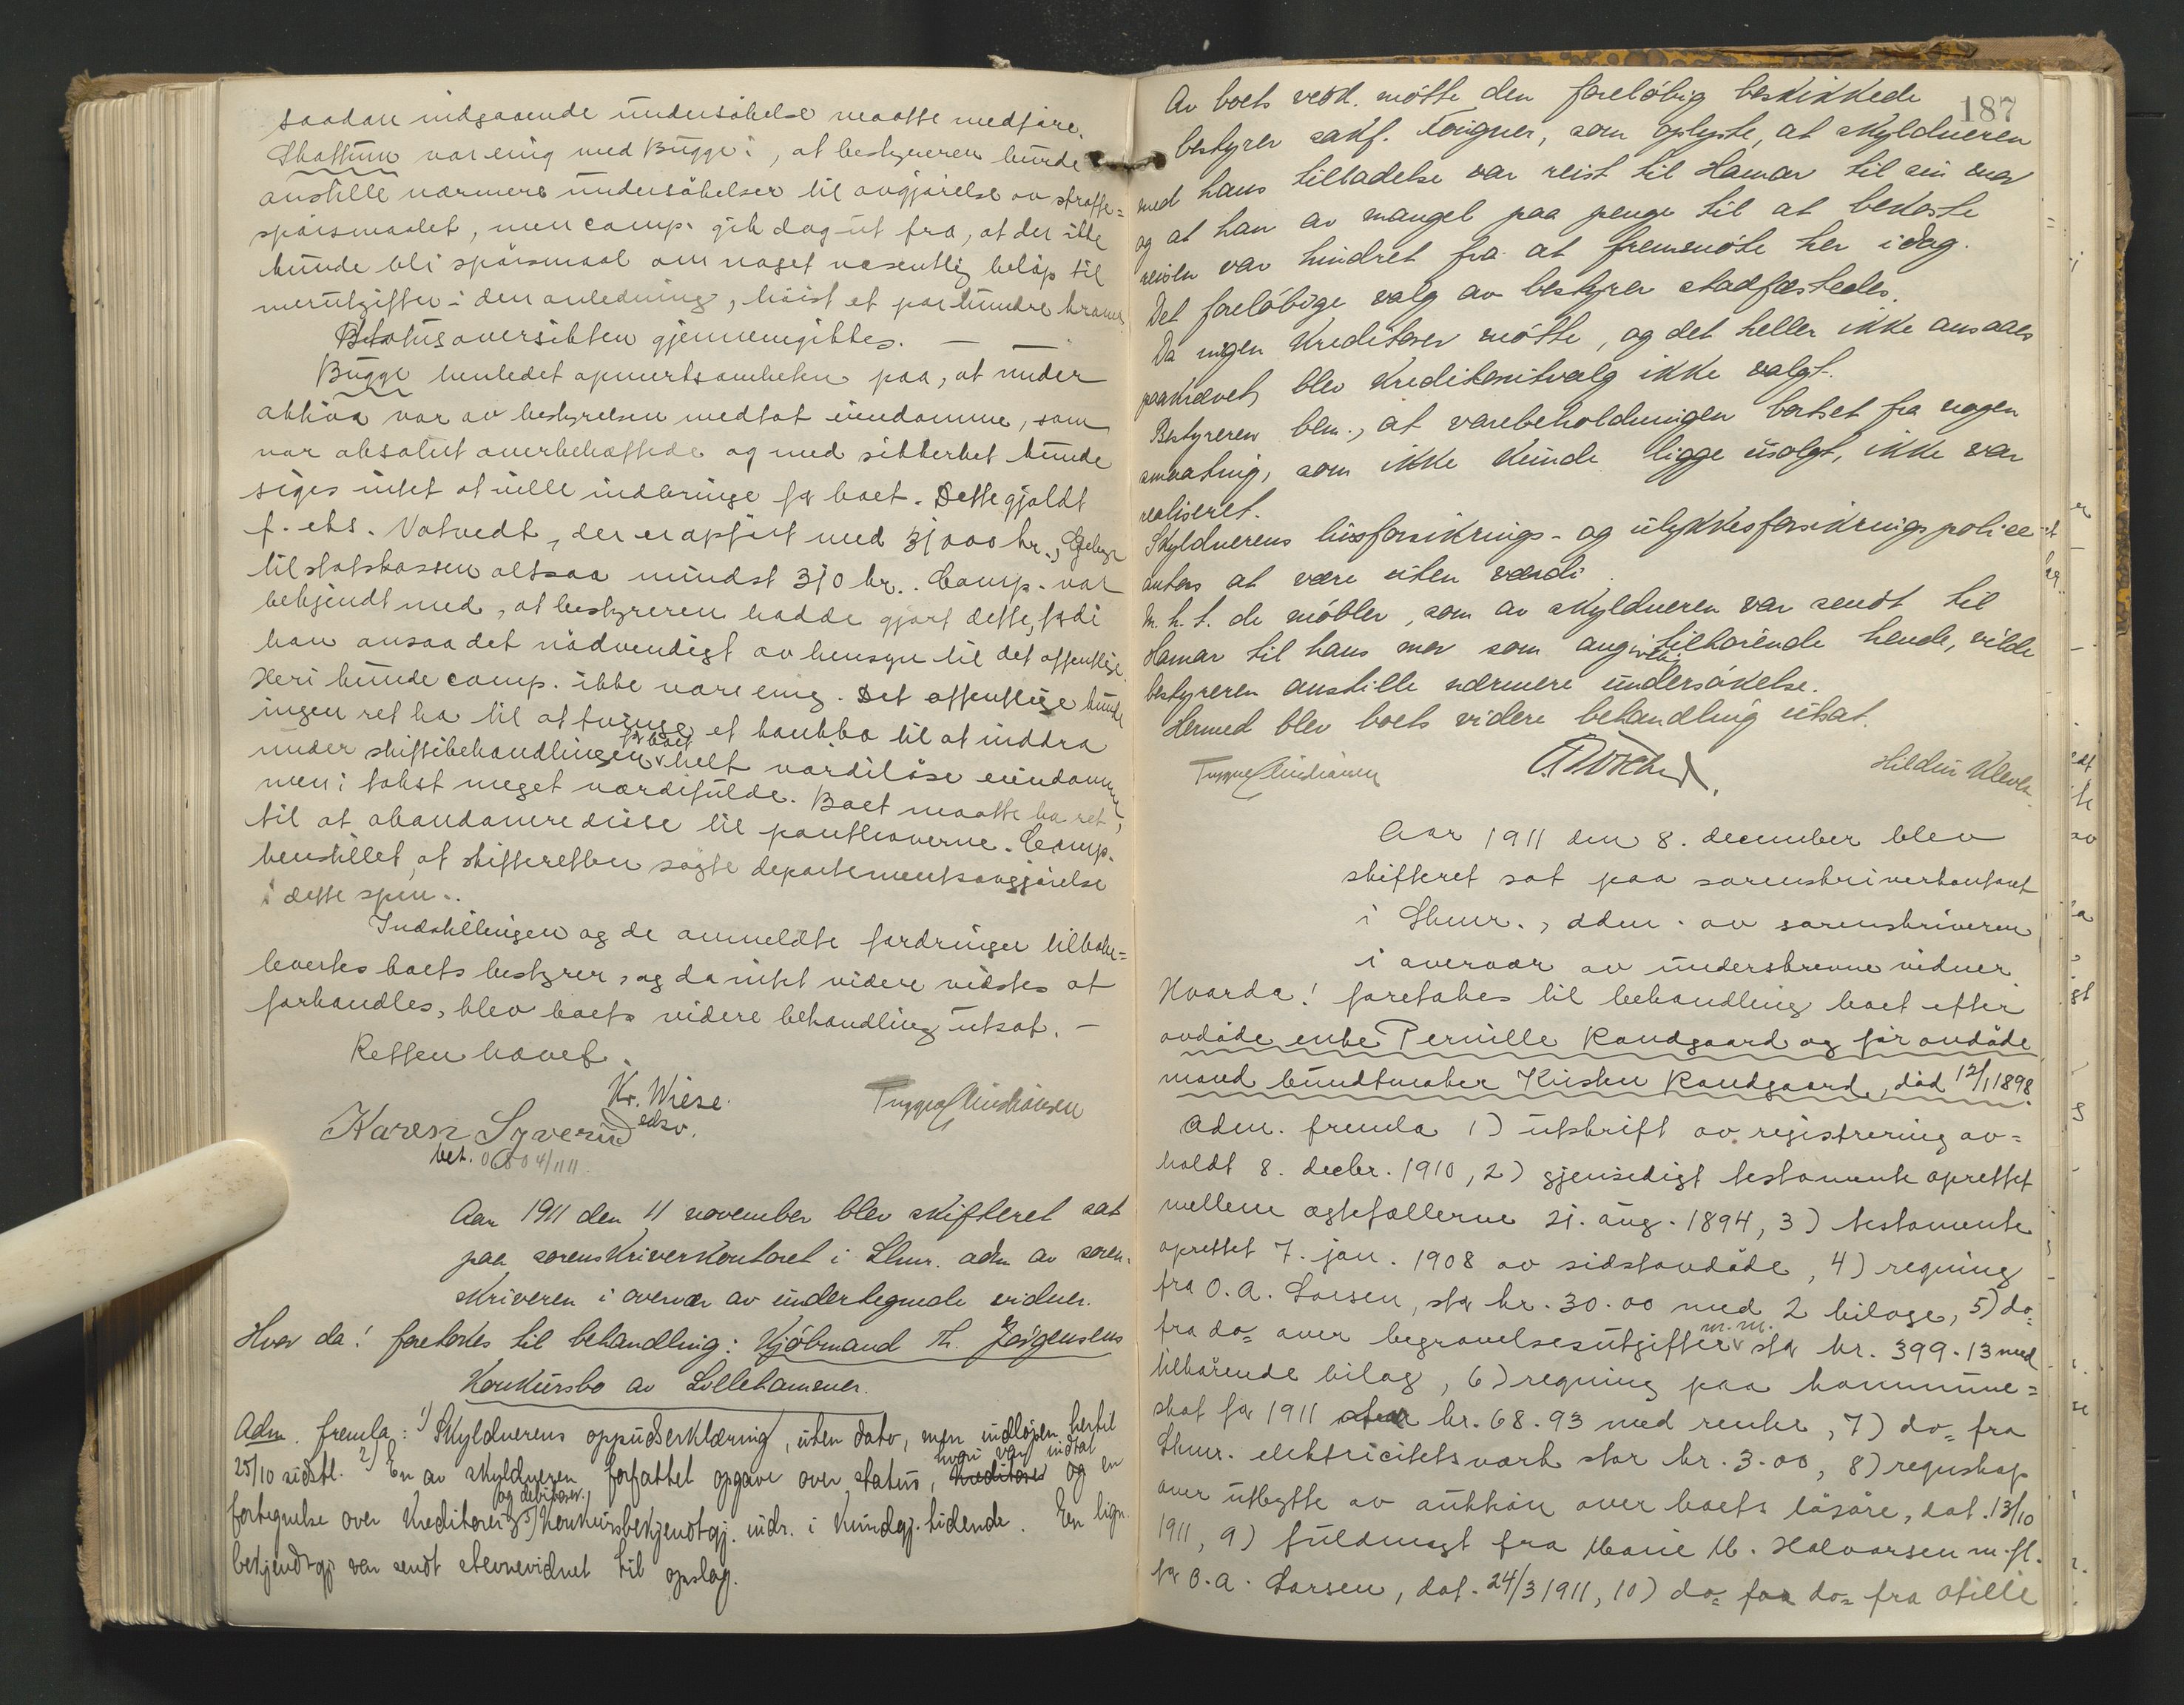 saadan indgaaende undersökelse maatte medføre.
Skattum var enig med Bugge i, at bestyreren burde
anstille nærmere undersökelser til avgjörelse av straffe=
spörsmaalet, men comp. gik dog ut fra, at der ikke
kunde bli spörsmaal om noget væsentlig belöp til
merutgifter i den anledning, höist et par hundre kroner
Statusoversikten gjennemgikkes. —
Bugge henledet opmerksomheten paa, at under
aktiva var av bestyrelsen medtat eiendomme, som
var absolut overbehæftede og med sikkerhet kunde
siges intet at ville indbringe for boet. Dette gjaldt
f. eks. Votvedt, der er opfört med 35000 kr., Gebyr
til statskassen altsaa mindst 350 kr.. Comp. var
bekjendt med, at bestyreren hadde gjort dette, fordi
han ansaa det nödvendigt av hensyn til det offentlige.
Heri kunde comp. ikke være enig. Det offentlige kunde
ingen ret ha til at tvinge et konkbo til at inddra
under skiftebehandlingen for boet helt værdilöse eiendomme,
men i takst meget værdifulde. Boet maatte ha ret
til at abandonere disse til panthaverne. Comp.
henstillet, at skifteretten sögte departementsavgjörelse
i dette spm..
Indstillingen og de anmeldte fordringer tilbake=
levertes boets bestyrer, og da intet videre vidstes at
forhandles, blev boets videre behandling utsat. —
Retten hævet.
Kr. Wiese
edsv.
Trygve Christiansen
Karen Syverud
bet. 0.60 4/11 11.
Aar 1911 den 11 november blev skifteret sat
paa sorenskriverkontoret i Lhmr. adm av soren-
skriveren i overvær av undertegnede vidner.
Hvor da! foretokes til behandling: Kjöbmand Th. Jörgensens
Konkursbo av Lillehammer.
Adm. fremla: 1) Skyldnerens oppudserklæring, uten dato, men indlöpen hertil
25/10 sidstl. 2) En av skyldneren forfattet opgave over status, hvori var indtat kreditorer og en
fortegnelse over kreditorer og debitorer. 3) Konkursbekjendtgj. indr. i Kundgj. tidende. En lign.
bekjendtgj. var sendt stevnevidnet til opslag.
187
Av boets vedk. mötte den foreløbig beskikkede
bestyrer sakf. Fougner, som oplyste, at skyldneren
med hans tilladelse var reist til Hamar til sin mor
og at han av mangel paa penge til at bekoste
reisen var hindret fra at fremmöte her idag.
Det foreløbige valg av bestyrer stadfæstedes.
Da ingen kreditorer mötte, og det heller ikke ansaaes
paakrævet, blev kreditorutvalg ikke valgt.
Bestyreren bem., at varebeholdningen bortset fra nogen
smaating, som ikke kunde ligge usolgt, ikke var
realiseret.
Skyldnerens livsforsikrings- og ulykkesforsikringspolice
antas at være uten værdi.
M. h. t. de möbler, som av skyldneren var sendt til
Hamar til hans mor som angivelig tilhørende hende, vilde
bestyreren anstille nærmere undersökelse.
Hermed blev boets videre behandling utsat.
Trygve Christiansen
Hildur Kleven
Aar 1911 den 8. december blev
skifteret sat paa sorenskriverkontoret
i Lhmr., adm. av sorenskriveren
i overvær av underskrevne vidner
Hvorda! foretokes til behandling boet efter
avdöde enke Pernille Randgaard og för avdöde
mand buntmaker Kristen Randgaard, död 12/1 1898.
Adm. fremla 1) utskrift av registrering av=
holdt 8. decbr. 1910, 2) gjensidigt testamente oprettet
mellem ægtefællerne 21. aug. 1894, 3) testamente
oprettet 7. jan. 1908 av sidstavdöde, 4) regning
fra O. A. Larsen, stor kr. 30.00 med 2 bilage, 5) do=
fra do= over begravelsesutgifter m.m. stor kr. 399.13 med
tilhörende bilag, 6) regning paa kommune=
skat for 1911 stor kr. 68.93 med renter, 7) do= fra
Lhmr. elektricitetsværk stor kr. 3.00, 8) regnskap
over utbytte av auktion over boets lösöre, dat. 13/10
1911, 9) fuldmagt fra Marie M. Halvorsen m.fl.
for O.A. Larsen, dat. 24/3 1911, 10) do= for do= fra Otilie